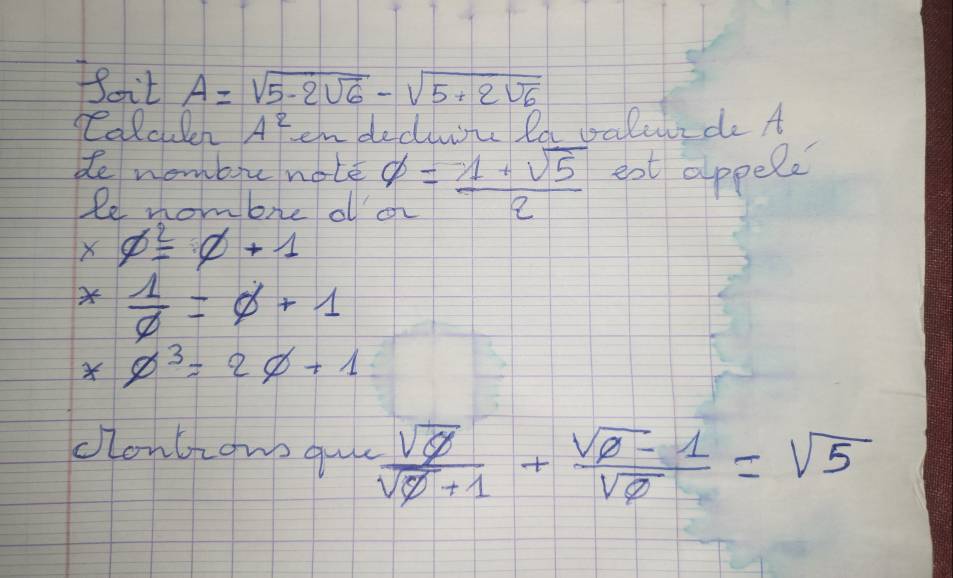 Soit A = √(5-2√6) - √(5+2√6)
Calculer A² en deduire la valeur de A
Le nombre noté ∅ = (1 + √5)/2 est appelé
le nombre d'or
× ∅² = ∅ + 1
* 1/∅ = ∅ + 1
* ∅³ = 2∅ + 1
Montrons que √∅/(√∅ + 1) + (√∅ - 1)/√∅ = √5